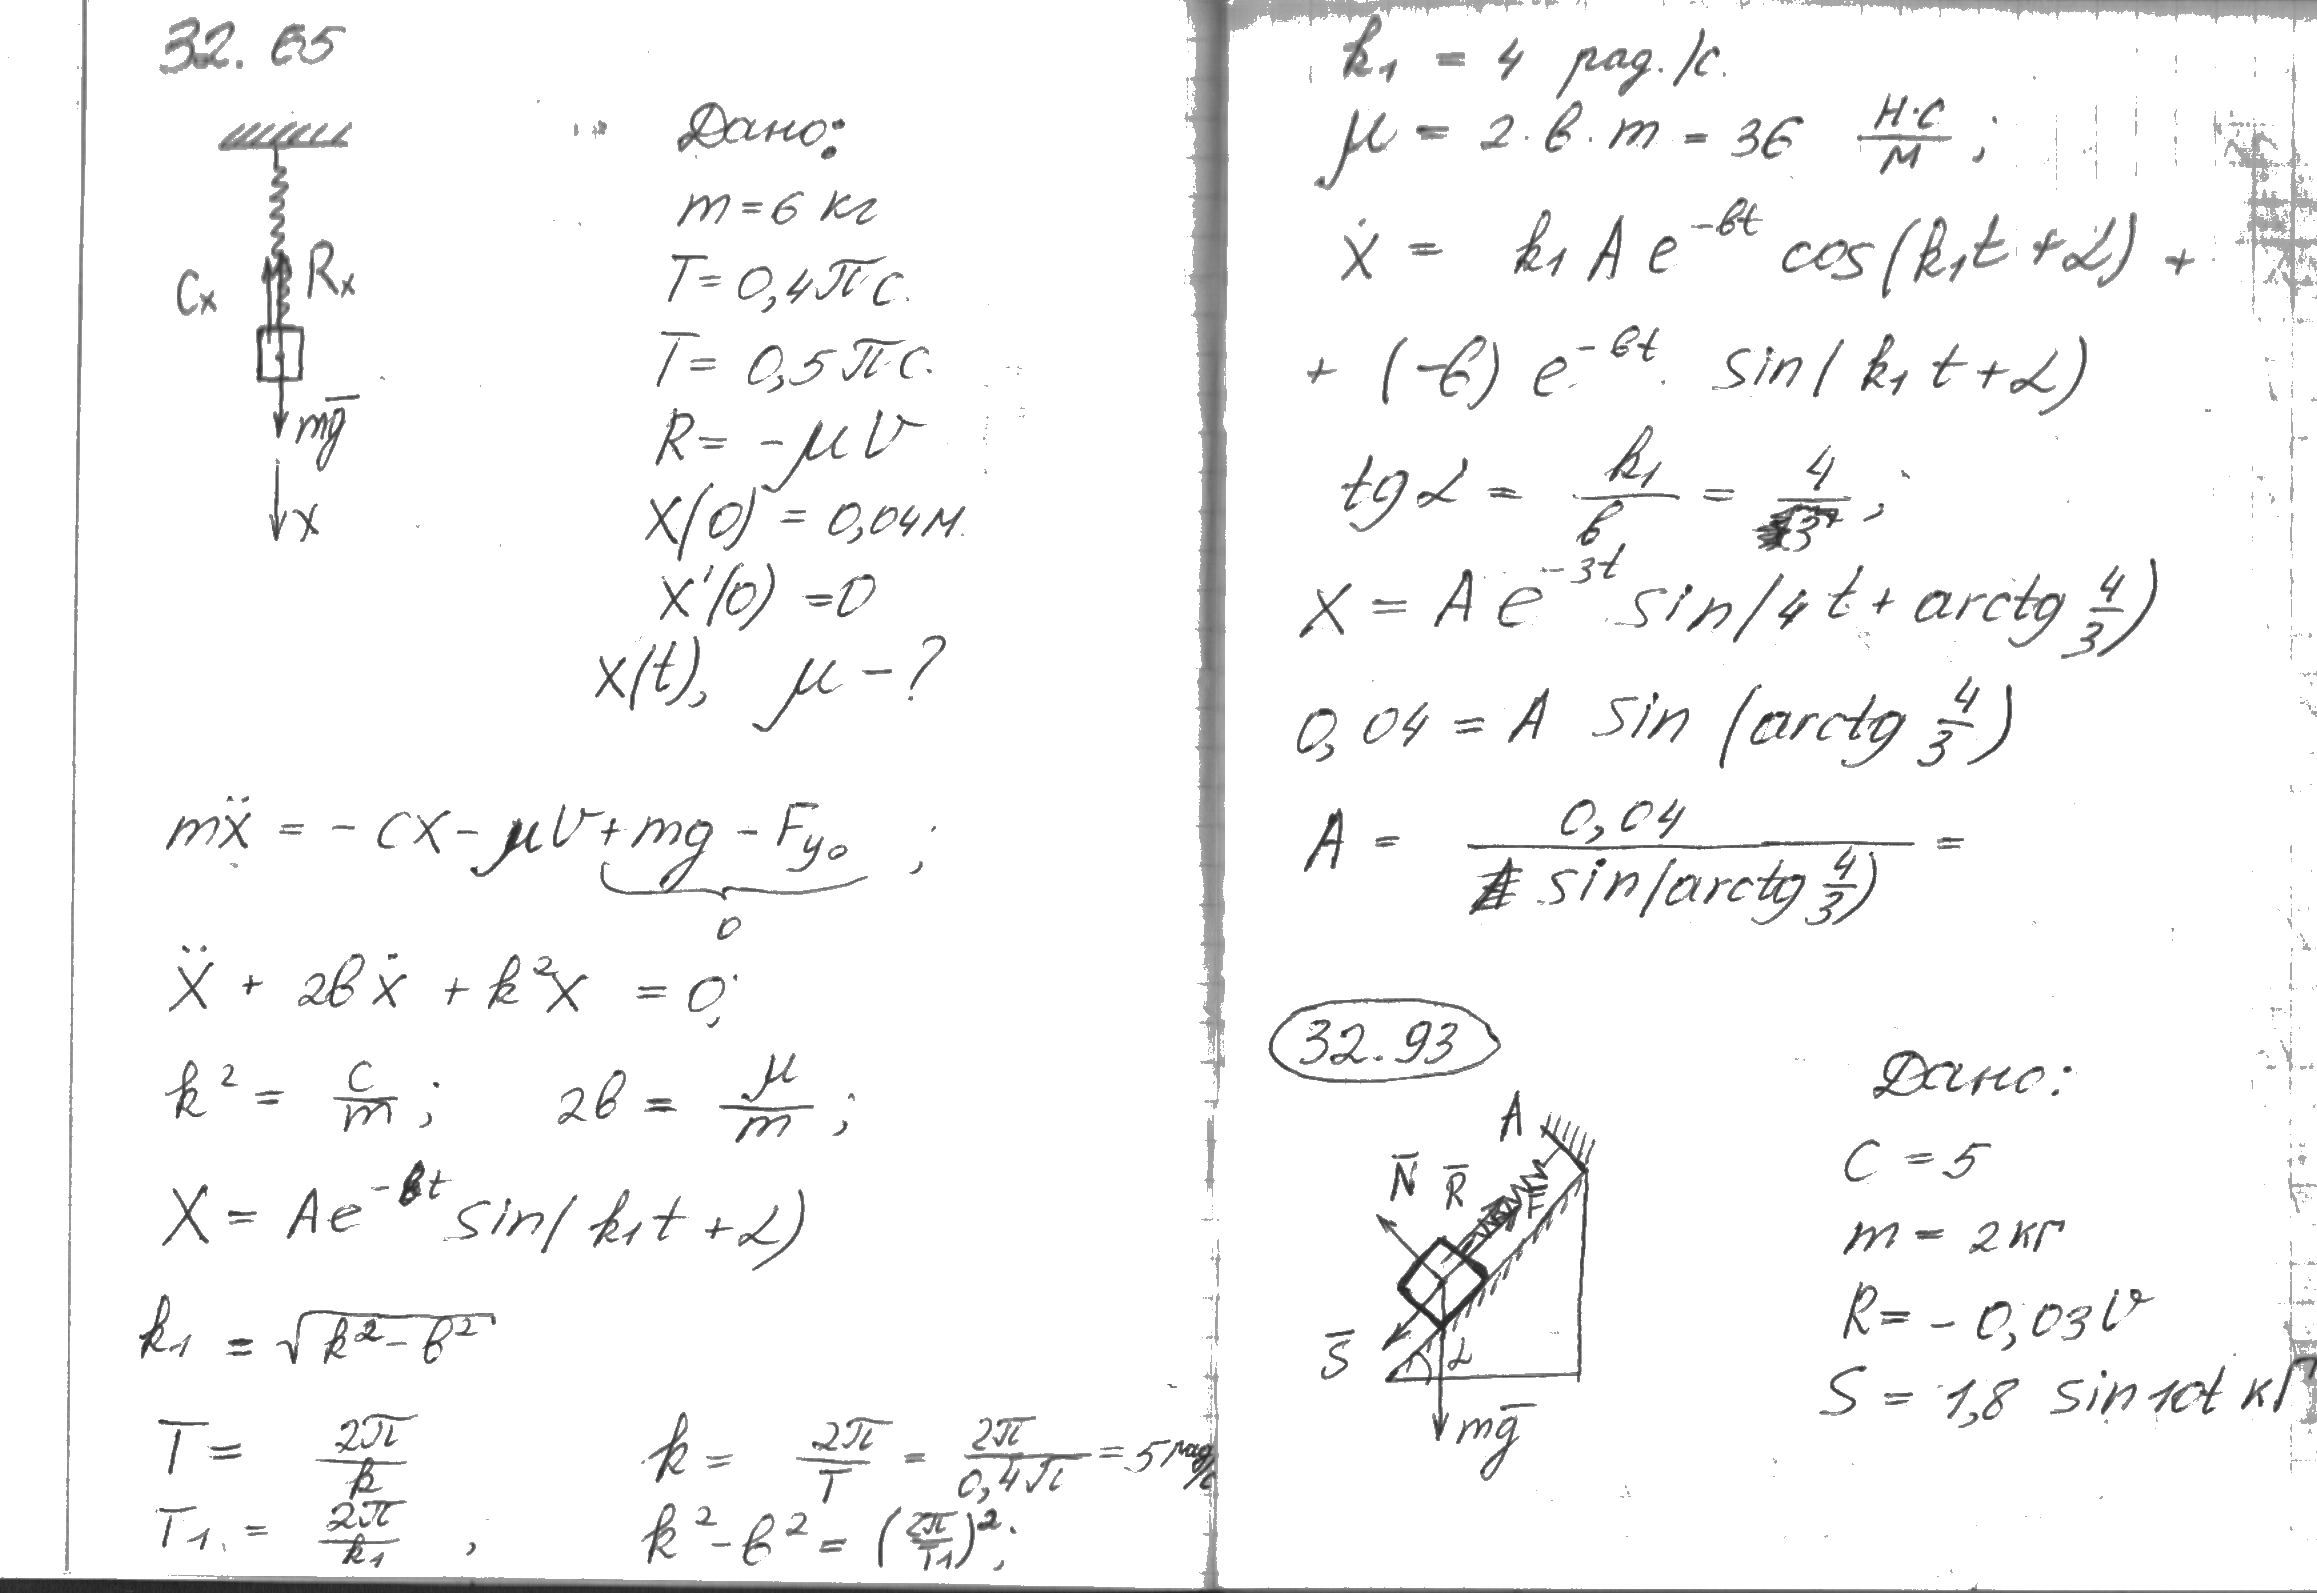 32.65
Дано:
m = 6 кг
T = 0,4π с.
T = 0,5π с.
R = -μV
x(0) = 0,04 м.
x'(0) = 0
x(t), μ - ?
Cx
Rx
mg̅
x
mẍ = -cx - μV + mg - Fy₀ ;
0
ẍ + 2bẋ + k²x = 0;
k² = c/m ; 2b = μ/m ;
X = Ae^(-bt) sin(k₁t + α)
k₁ = √(k² - b²)
T = 2π/k k = 2π/T = 2π/0,4π = 5 рад/с
T₁ = 2π/k₁ , k² - b² = (2π/T₁)²;
k₁ = 4 рад./с.
μ = 2·b·m = 36 Н·с/м ;
ẋ = k₁ A e^(-bt) cos(k₁t + α) +
+ (-b) e^(-bt) sin(k₁t + α)
tg α = k₁/b = 4/3 ;
X = A e^(-3t) sin(4t + arctg 4/3)
0,04 = A sin (arctg 4/3)
A = 0,04/sin(arctg 4/3) =
32.93
Дано:
C = 5
m = 2 кг
R = - 0,03V
S = 1,8 sin 10t кГ
A
N̅
R̅
F
S̅
α
mg̅